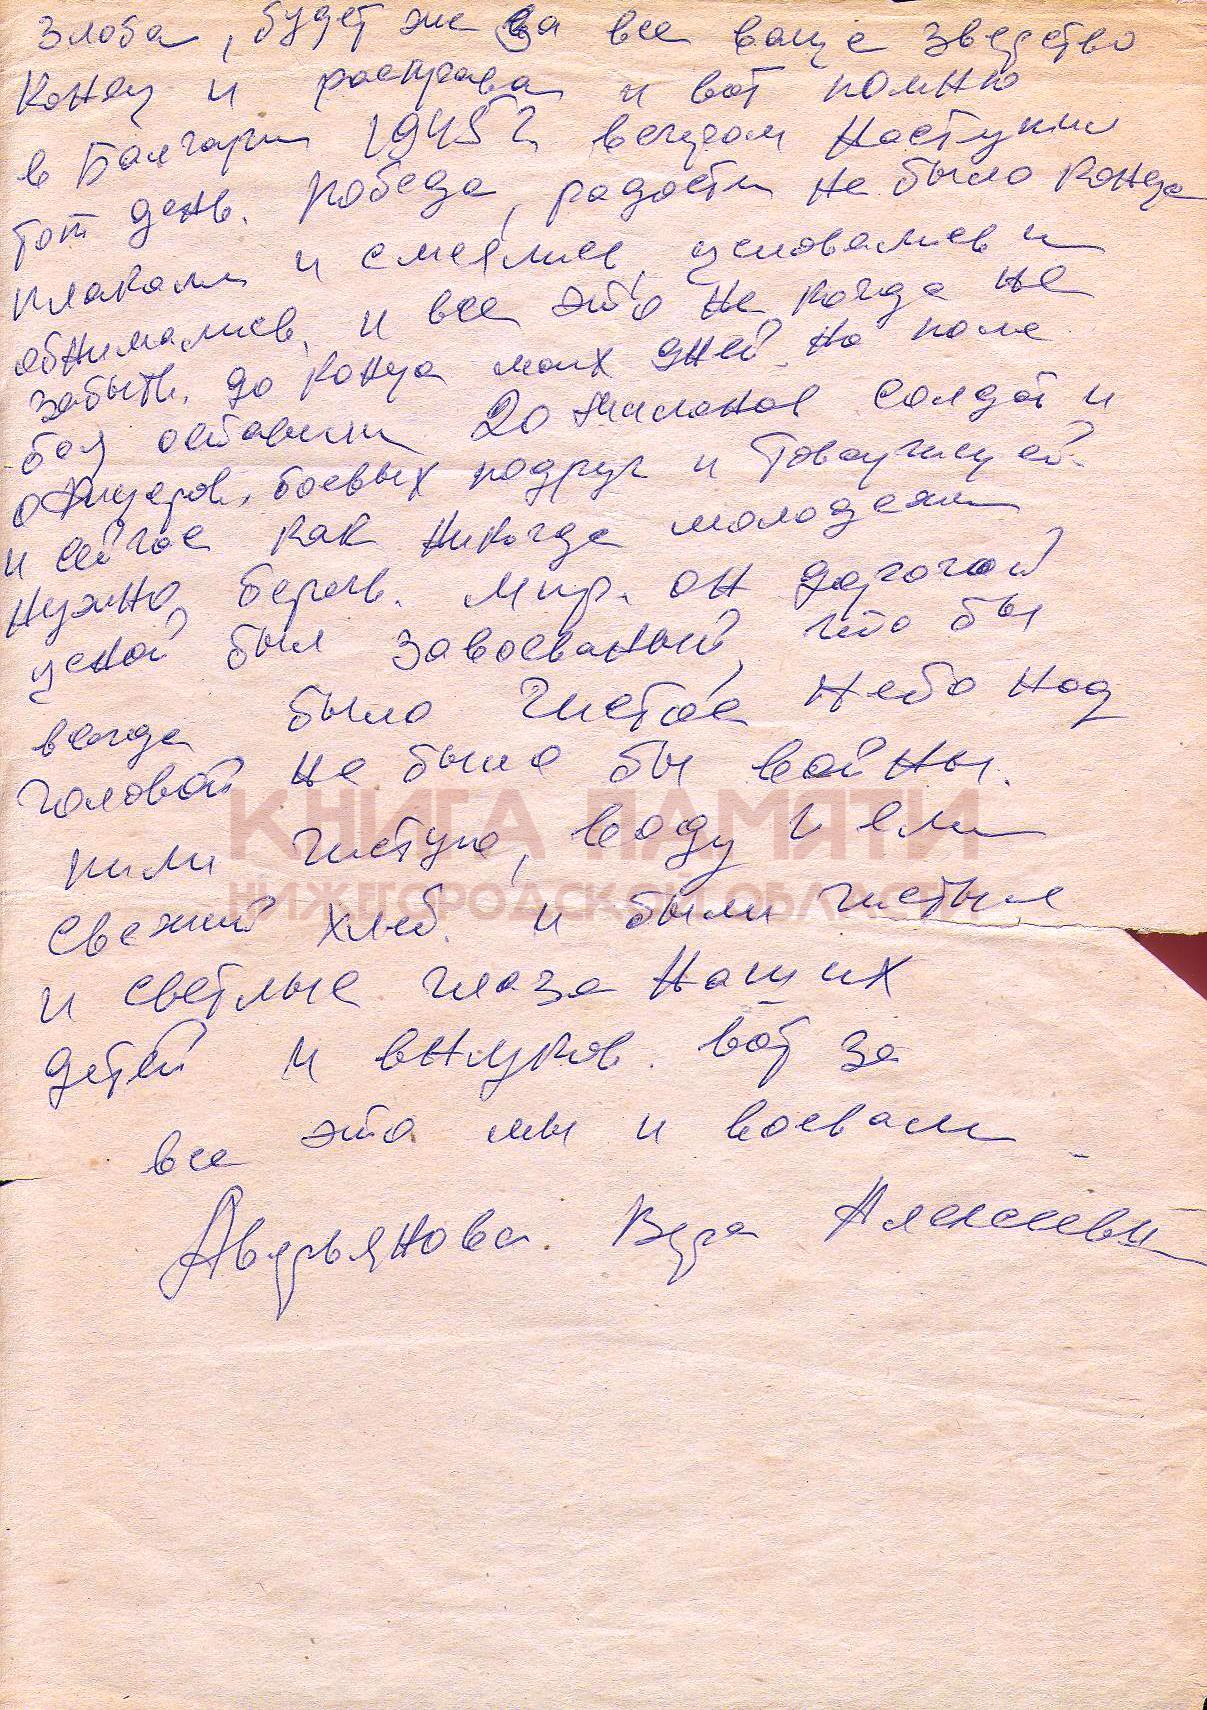 злоба, будет же за все ваще зверство
конец и расправа и вот помню
в Балгари 1945 г. вечером наступил
тот день. победа, радости не было конца
плакали и смеялись, целовались и
обнимались, и все это не когда не
забыть. до конца моих дней. на поле
боя оставили 20 миллионов солдат и
офицеров. боевых подруг и товарищей.
и сейчас как никогда молодежи
нужно беречь. мир. он дорогой
ценой был завоеванный, что бы
всегда было чистое небо над
головой не было бы войны.
КНИГА ПАМЯТИ
пили чистую, воду и ели
НИЖЕГОРОДСКОЙ ОБЛАСТИ
свежий хлеб. и были чистые
и светлые глаза наших
детей и внуков. вот за
все это мы и воевали
Аверьянова Вера Алексеевн